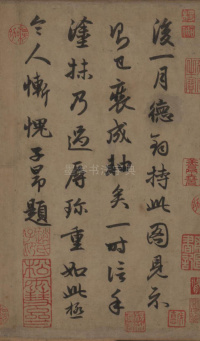 後一月德鈞持此圖見示
則已裝成軸矣一時信手
塗抹乃過辱珍重如此極
令人慚愧子昂題
松雪齋